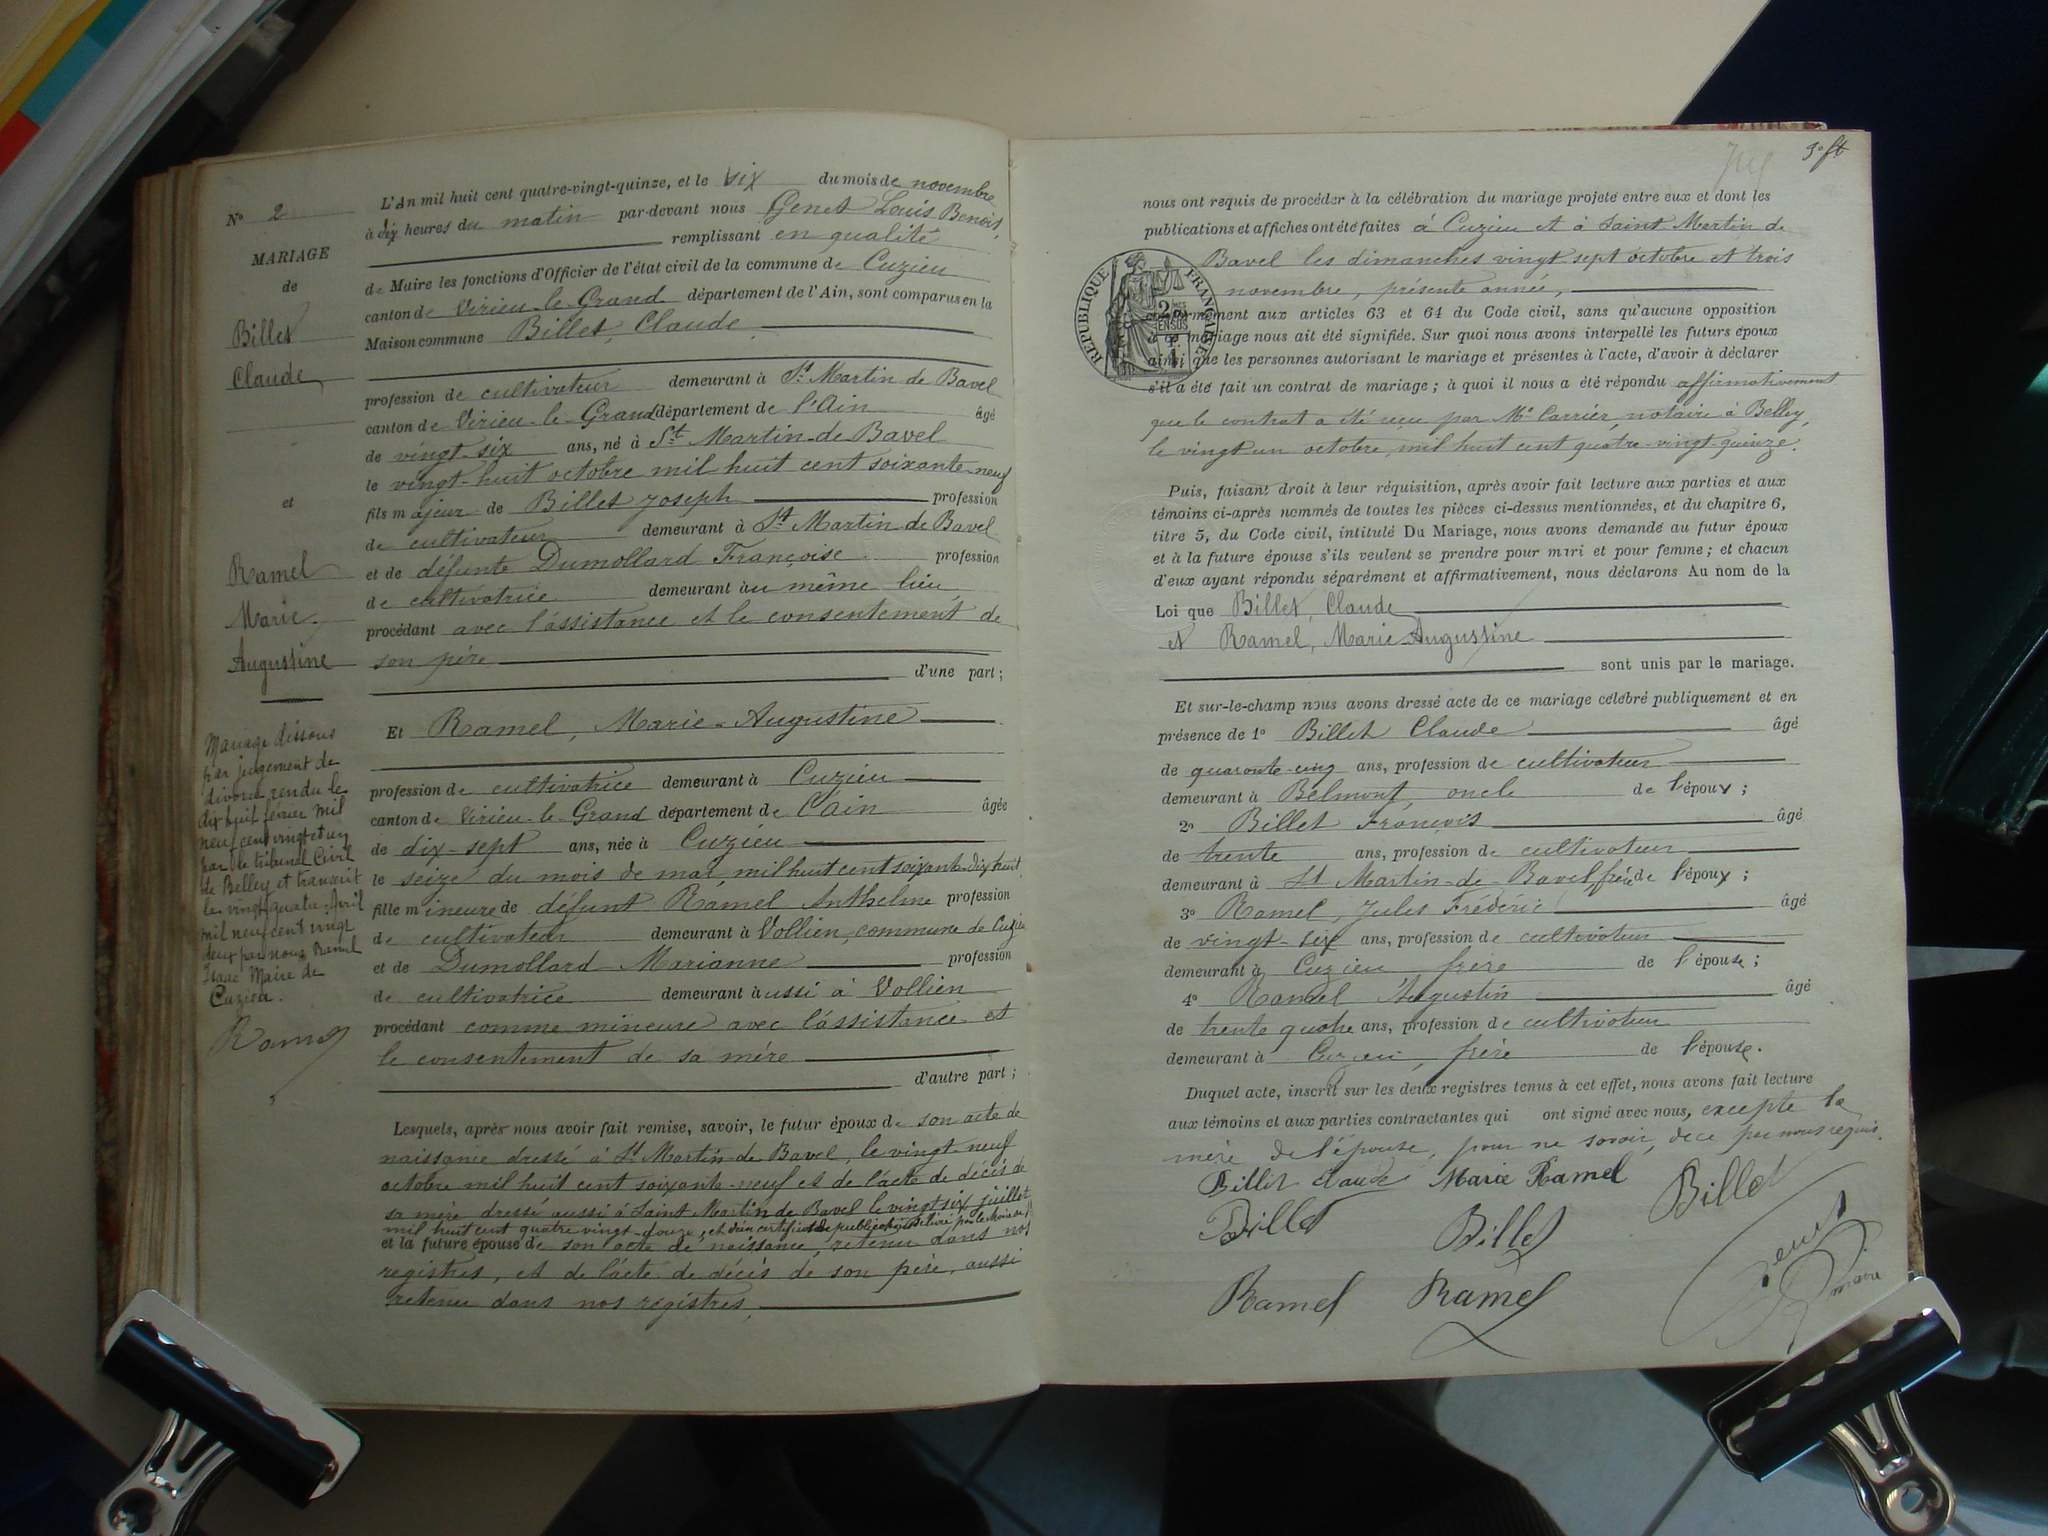 N° 2
MARIAGE
de
Billet
Claude
et
Ramel
Marie
Augustine
Mariage dissous
par jugement de
divorce rendu le
dix huit février mil
neuf cent vingt et un
par le tribunal Civil
de Belley et transcrit
le vingt quatre Avril
mil neuf cent vingt
deux par nous Ramel
Isaac Maire de
Cuzieu.
Ramel
L'An mil huit cent quatre-vingt-quinze, et le six du mois de novembre
à dix heures du matin par-devant nous Genet Louis Benoit,
remplissant en qualité
de Maire les fonctions d'Officier de l'état civil de la commune de Cuzieu
canton de Virieu-le-Grand département de l'Ain, sont comparus en la
Maison commune Billet, Claude
profession de cultivateur demeurant à St Martin de Bavel
canton de Virieu-le-Grand département de l'Ain âgé
de vingt-six ans, né à St Martin-de Bavel
le vingt-huit octobre mil huit cent soixante-neuf
fils majeur de Billet Joseph profession
de cultivateur demeurant à St Martin de Bavel
et de défunte Dumollard Françoise profession
de cultivatrice demeurant au même lieu
procédant avec l'assistance et le consentement de
son père
d'une part;
Et Ramel, Marie-Augustine
profession de cultivatrice demeurant à Cuzieu
canton de Virieu-le-Grand département de l'ain âgée
de dix-sept ans, née à Cuzieu
le seize du mois de mai mil huit cent soixante-dix huit
fille mineure de défunt Ramel Anthelme profession
de cultivateur demeurant à Vollien, commune de Cuzieu
et de Dumollard Marianne profession
de cultivatrice demeurant aussi à Vollien
procédant comme mineure avec l'assistance et
le consentement de sa mère
d'autre part;
Lesquels, après nous avoir fait remise, savoir, le futur époux de son acte de
naissance dressé à St Martin de Bavel, le vingt-neuf
octobre mil huit cent soixante-neuf et de l'acte de décès de
sa mère dressé aussi à Saint Martin de Bavel le vingt six juillet
mil huit cent quatre vingt-douze, et d'un certificat de publication délivré par le Maire
et la future épouse de son acte de naissance, retenu dans nos
registres, et de l'acte de décès de son père, aussi
retenu dans nos registres,
3e ft
nous ont requis de procéder à la célébration du mariage projeté entre eux et dont les
publications et affiches ont été faites à Cuzieu et à Saint Martin de
Bavel les dimanches vingt sept octobre et trois
novembre, présente année,
RÉPUBLIQUE FRANÇAISE
conformément aux articles 63 et 64 du Code civil, sans qu'aucune opposition
à ce mariage nous ait été signifiée. Sur quoi nous avons interpellé les futurs époux
ainsi que les personnes autorisant le mariage et présentes à l'acte, d'avoir à déclarer
s'il a été fait un contrat de mariage; à quoi il nous a été répondu affirmativement
que le contrat a été reçu par Me Carrier, notaire à Belley,
le vingt un octobre, mil huit cent quatre-vingt-quinze.
Puis, faisant droit à leur réquisition, après avoir fait lecture aux parties et aux
témoins ci-après nommés de toutes les pièces ci-dessus mentionnées, et du chapitre 6,
titre 5, du Code civil, intitulé Du Mariage, nous avons demandé au futur époux
et à la future épouse s'ils veulent se prendre pour mari et pour femme; et chacun
d'eux ayant répondu séparément et affirmativement, nous déclarons Au nom de la
Loi que Billet, Claude
et Ramel, Marie Augustine
sont unis par le mariage.
Et sur-le-champ nous avons dressé acte de ce mariage célébré publiquement et en
présence de 1° Billet Claude âgé
de quarante-cinq ans, profession de cultivateur
demeurant à Belmont, oncle de l'époux;
2° Billet François âgé
de trente ans, profession de cultivateur
demeurant à St Martin-de-Bavel, frère de l'époux;
3° Ramel, Jules Frédéric âgé
de vingt-six ans, profession de cultivateur
demeurant à Cuzieu, frère de l'épouse;
4° Ramel Augustin âgé
de trente quatre ans, profession de cultivateur
demeurant à Cuzieu, frère de l'épouse.
Duquel acte, inscrit sur les deux registres tenus à cet effet, nous avons fait lecture
aux témoins et aux parties contractantes qui ont signé avec nous, excepté la
mère de l'épouse, pour ne savoir, de ce par nous requis.
Billet Claude Marie Ramel Billet
Billet Billet
Ramel Ramel
Genet
maire